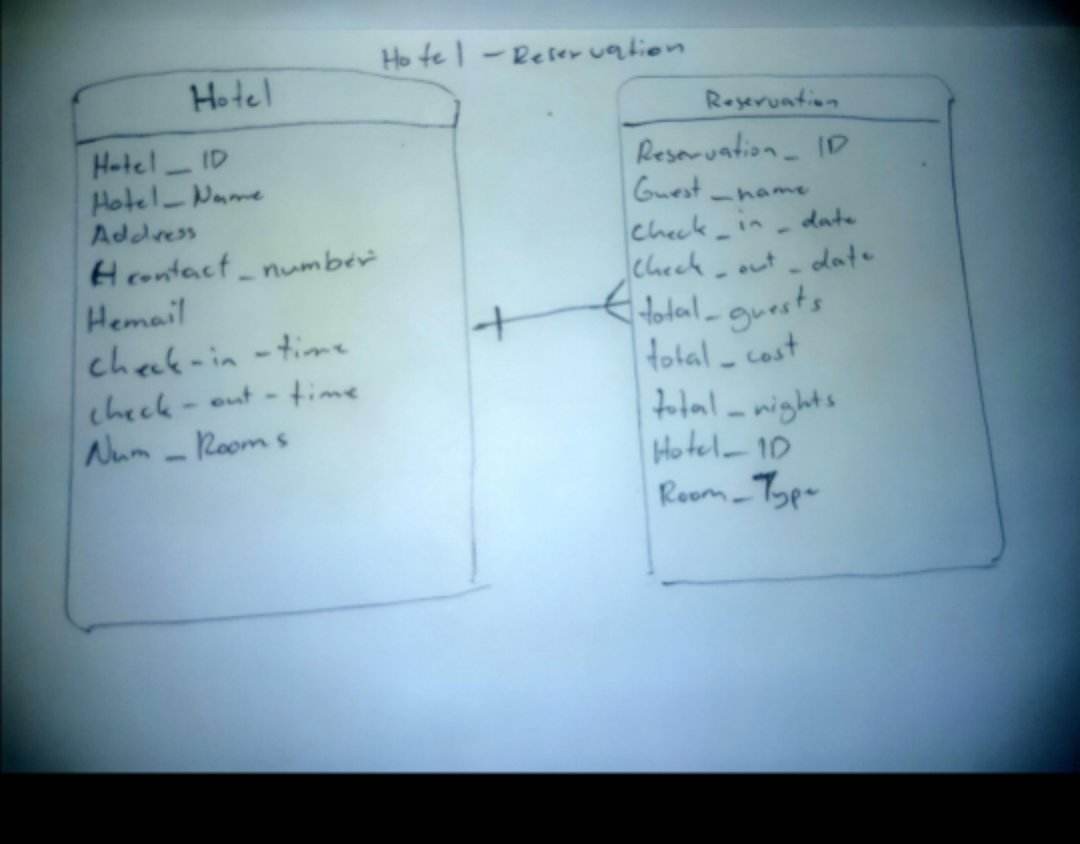 Hotel - Reservation
Hotel
Hotel_ID
Hotel_Name
Address
Hcontact_number
Hemail
check-in-time
check-out-time
Num_Rooms
Reservation
Reservation_ID
Guest_name
check_in_date
check_out_date
total_guests
total_cost
total_nights
Hotel_ID
Room_Type